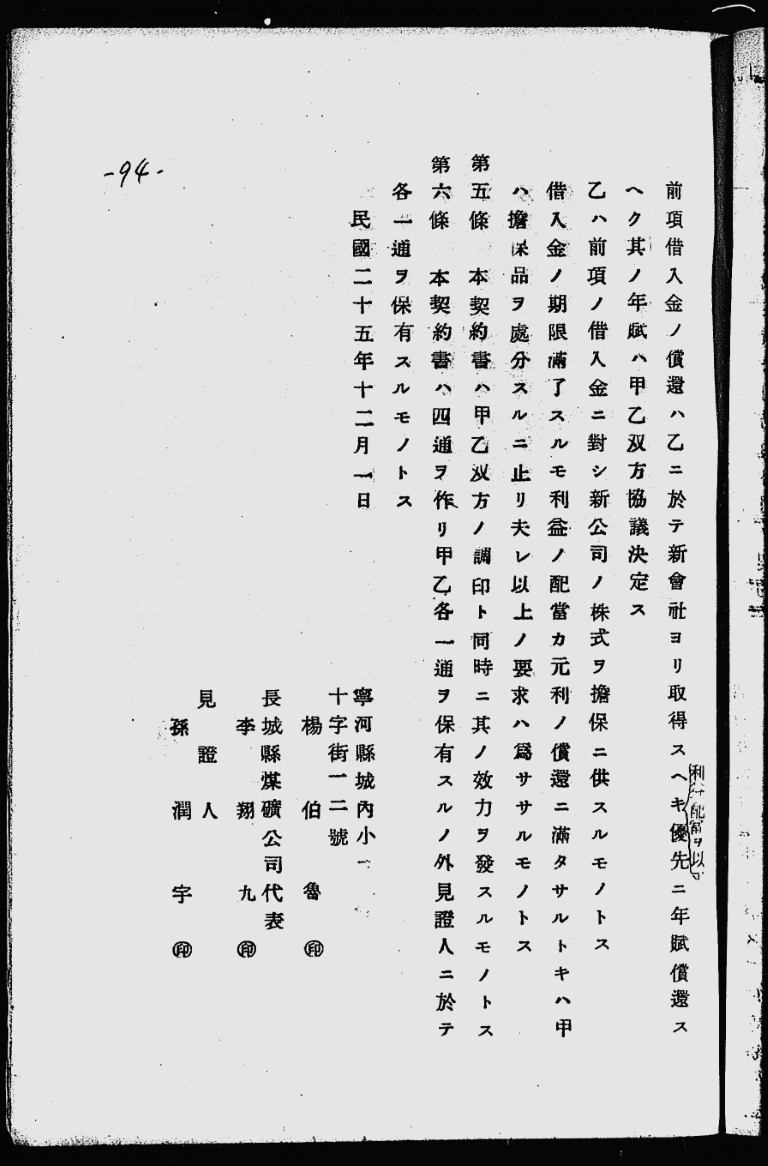 前項借入金ノ償還ハ乙ニ於テ新會社ヨリ取得スヘキ優先ニ年賦償還ス
利益配當ヲ以
ヘク其ノ年賦ハ甲乙双方協議決定ス
乙ハ前項ノ借入金ニ對シ新公司ノ株式ヲ擔保ニ供スルモノトス
借入金ノ期限滿了スルモ利益ノ配當カ元利ノ償還ニ滿タサルトキハ甲
ハ擔保品ヲ處分スルニ止リ夫レ以上ノ要求ハ爲ササルモノトス
第五條 本契約書ハ甲乙双方ノ調印ト同時ニ其ノ效力ヲ發スルモノトス
第六條 本契約書ハ四通ヲ作リ甲乙各一通ヲ保有スルノ外見證人ニ於テ
各一通ヲ保有スルモノトス
民國二十五年十二月一日
寧河縣城內小
十字街一二號
楊伯魯㊞
長城縣煤礦公司代表
李翔九㊞
見證人
孫潤宇㊞
-94-